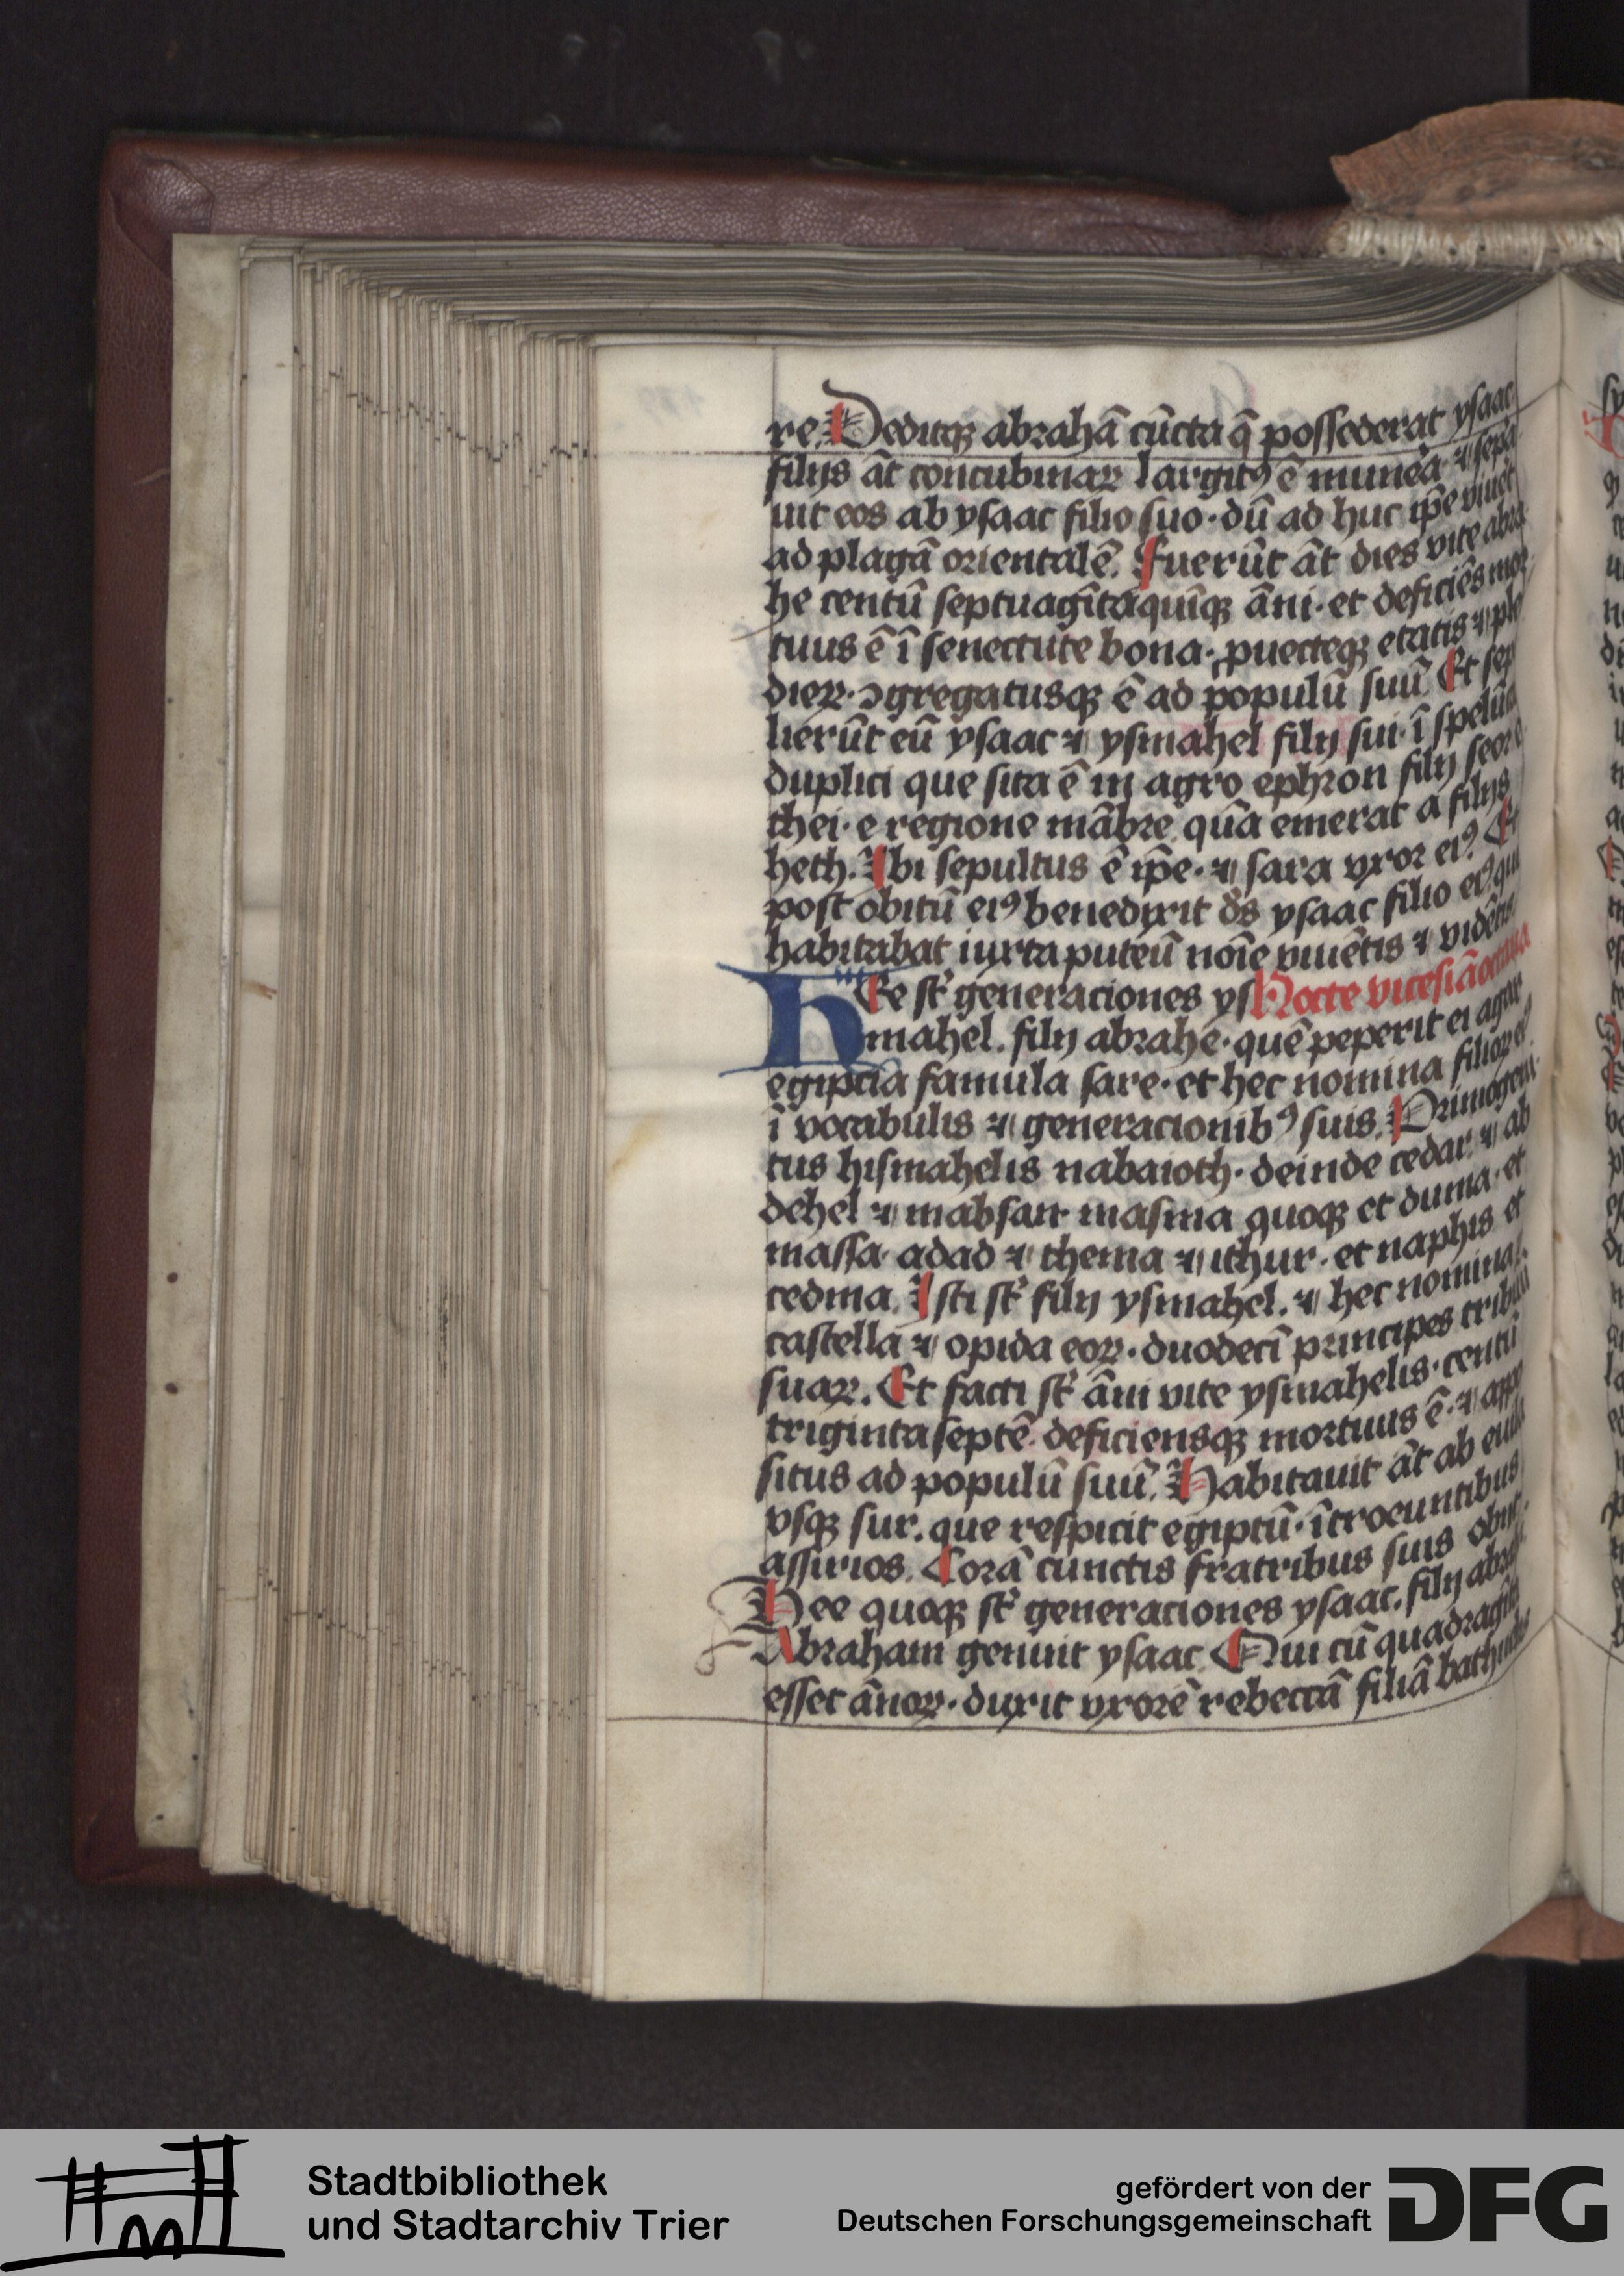 re. Deditq3 abrahā cūcta q̄ possederat ysaac
filijs āt concubinaꝝ largitꝰ ē munera ⁊ sepa
uit eos ab ysaac filio suo · dū ad huc ip̄e viuēt
ad plagā orientalē. Fuerūt āt dies vite abra
he centū septuagītaquīqꝫ āni · et deficiēs mor
tuus ē ī senectute bona · ꝓuecteqꝫ etatis ⁊ ple
dieꝝ · ꝯgregatusqꝫ ē ad populū suū Et sep
lierūt eū ysaac ⁊ ysmahel filij sui · ī spelūca
duplici que sita ē in agro ephron filij seor
thei · e regione mābre quā emerat a filijs
heth. Ibi sepultus ē ip̄e · ⁊ sara vxor eiꝰ Et
post obitū eiꝰ benedixit d̄s ysaac filio eiꝰ qui
habitabat iuxta puteū noīe viuētis ⁊ vidētis
Hee st̄ generaciones ys Nocte vicesiā octaua
mahel. filij abrahe · quē peperit ei agar
egipcia famula sare · et hec nomina filioꝝ eiꝰ
ī vocabulis ⁊ generacionibꝰ suis. Primogeni
tus hismahelis nabaioth · deinde cedar · ⁊ ab
dehel ⁊ mabsan masma quoqꝫ et duma · et
massa · adad ⁊ thema ⁊ ithur · et naphis et
cedma. Isti st̄ filij ysmahel. ⁊ hec nomina
castella ⁊ opida eoꝝ · duodecī principes tribuū
suaꝝ. Et facti st̄ āni vite ysmahelis · centū
triginta septē deficiensqꝫ mortuus ē · ⁊ appo
situs ad populū suū. Habitauit āt ab euila
vsqꝫ sur. que respicit egiptū · ītroeuntibus
assirios. Corā cunctis fratribus suis obijt.
Hee quoqꝫ st̄ generaciones ysaac. filij abrahe
Abraham genuit ysaac Qui cū quadragīta
esset ānoꝝ · duxit vxorē rebeccā filiā bathuelis
Stadtbibliothek
und Stadtarchiv Trier
gefördert von der
Deutschen Forschungsgemeinschaft
DFG